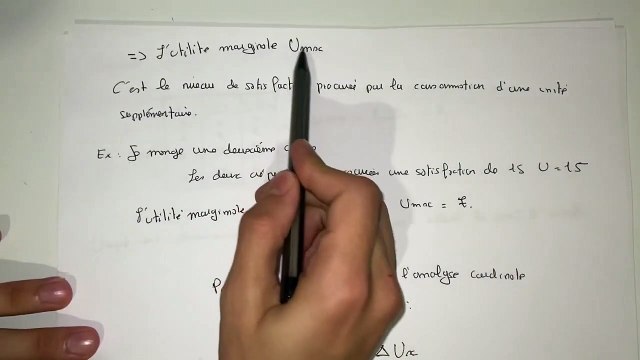 => L'utilité marginale Umx
C'est le niveau de satisfact procuré par la consommation d'une unité
supplémentaire.
Ex : Je mange une deuxième
Les deux une satisfaction de 15 U = 15
L'utilité marginale Umx = 7.
l'analyse cardinale
:
Δ Ux